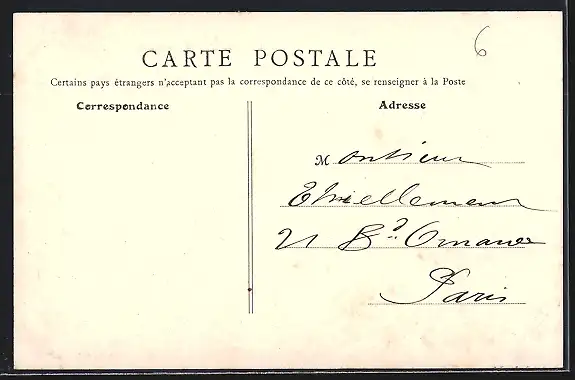 6
CARTE POSTALE
Certains pays étrangers n'acceptant pas la correspondance de ce côté, se renseigner à la Poste
Correspondance
Adresse
Monsieur
21 Bd Ornano
Paris